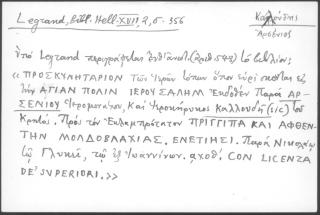 Legrand, Bibl. Hell. XVII, 2, σ. 356
Καλλούδης
Ἀρσένιος
Ὑπὸ Legrand περιγράφεται ἐνθ' ἀνωτ. (ἀριθ. 547) τὸ βιβλίον:
« ΠΡΟΣΚΥΛΗΤΑΡΙΟΝ Τῶν Ἱερῶν τόπων ὁποῦ εὑρίσκονται εἰς
τὴν ΑΓΙΑΝ ΠΟΛΙΝ ΙΕΡΟΥΣΑΛΗΜ Ἐκδοθὲν Παρὰ ΑΡ-
ΣΕΝΙΟΥ Ἱερομονάχου, Καὶ Ἱεροκήρυκος Καλλουδῆ (sic) τοῦ
Κρητός. Πρὸς τὸν Ἐκλαμπρότατον ΠΡΙΓΓΙΠΑ ΚΑΙ ΑΦΘΕΝ-
ΤΗΝ ΜΟΛΔΟΒΛΑΧΙΑΣ. ΕΝΕΤΙΗΣΙ. Παρὰ Νικολάῳ
τῷ Γλυκεῖ, τῷ ἐξ Ἰωαννίνων. αχοθ'. CON LICENZA
DE' SUPERIORI. »